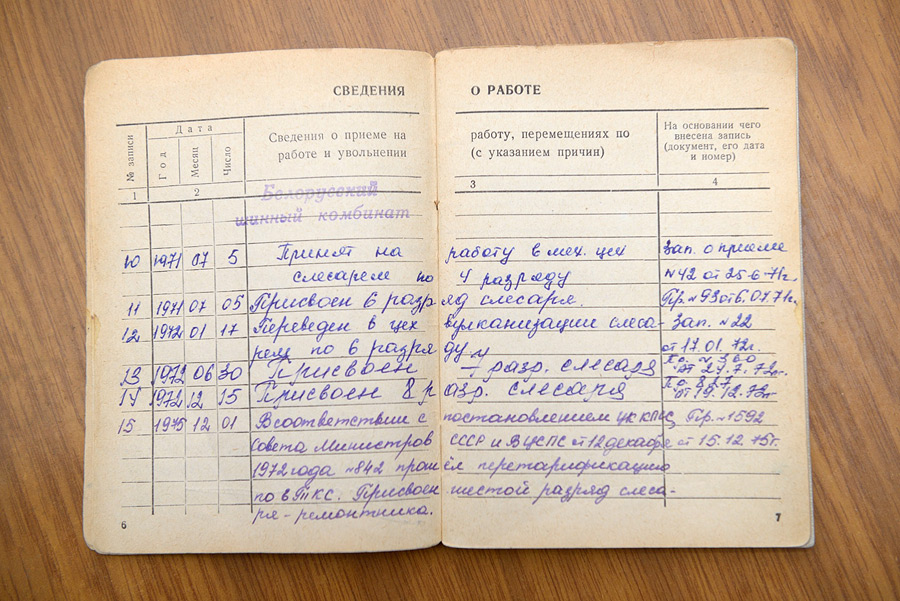 СВЕДЕНИЯ О РАБОТЕ
№ записи
Дата
Год
Месяц
Число
Сведения о приеме на работу, перемещениях по
работе и увольнении (с указанием причин)
На основании чего
внесена запись
(документ, его дата
и номер)
1 2 3 4
Белорусский
шинный комбинат
10 1971 07 5 Принят на работу в мех. цех Зап. о приеме
слесарем по 4 разряду №42 от 25-6-71г.
11 1971 07 05 Присвоен 6 разряд слесаря. Пр. №93 от 6.07.71г.
12 1972 01 17 Переведен в цех вулканизации слеса- Зап. №22
рем по 6 разряду от 17.01.72г.
13 1972 06 30 Присвоен 7 разр. слесаря №360
от 27.7.72г.
14 1972 12 15 Присвоен 8 разр. слесаря 827
от 19.12.72г.
15 1975 12 01 В соответствии с постановлением ЦК КПСС, Пр. №1592
Совета Министров СССР и ВЦСПС от 12 декабря от 15.12.75г.
1972 года №842 прошёл перетарификацию
по ЕТКС. Присвоен шестой разряд слеса-
ря-ремонтника.
6 7